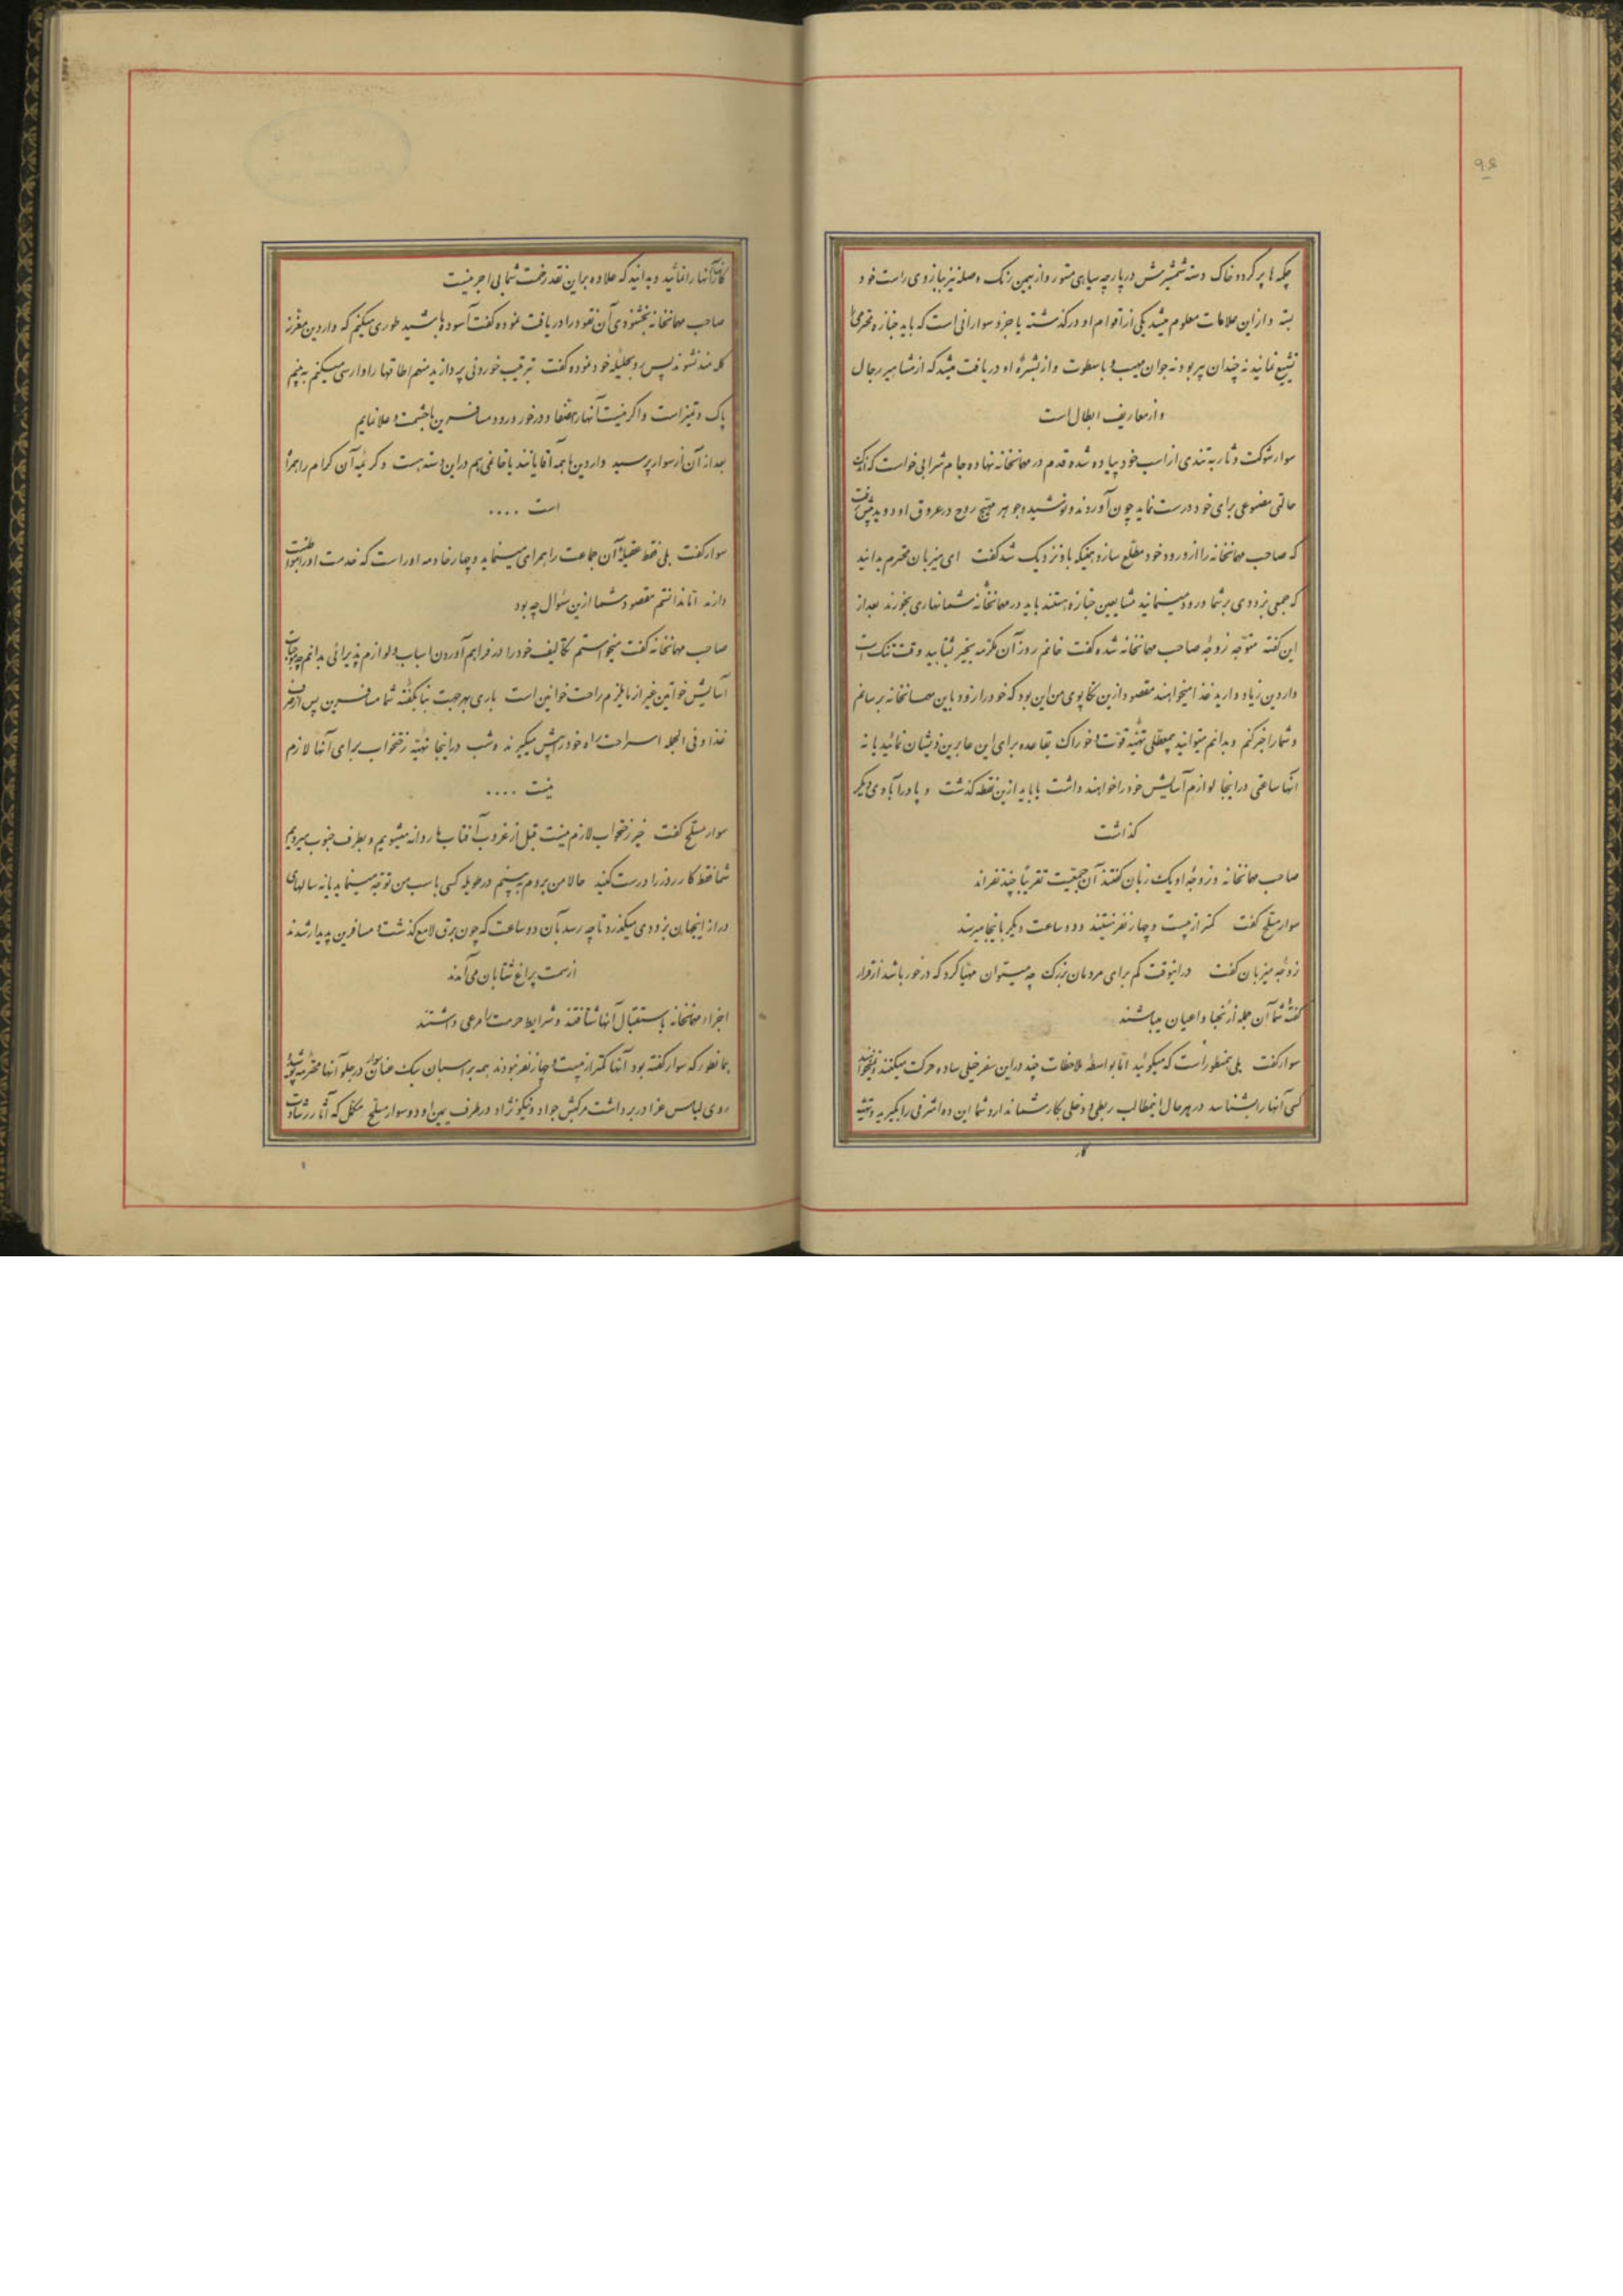 ۹۶
چکمه‌ها پر گرد و خاک دسته شمشیرش در پارچه سیاهی مستور و از همین رنگ وصله نیز ببازوی راست خود
بسته و از این علامات معلوم میشد یکی از اقوام او درگذشته یا جزو سوارانی است که باید جنازه محترمی را
تشییع نمایند نه چندان پیر بود نه جوان مهیب و با سطوت و از بشرهٔ او دریافت میشد که از مشاهیر رجال
و از معاریف ابطال است
سوار شوکت دثار به تندی از اسب خود پیاده شده قدم در مهمانخانه نهاده جام شرابی خواست که اندک
حالتی مصنوعی برای خود درست نماید چون آوردند و نوشید و جوهر مهیج روح در عروق او دوید پیش رفت
که صاحب مهمانخانه را از ورود خود مطلع سازد همینکه باو نزدیک شد گفت ای میزبان محترم بدانید
که جمعی بزودی بر شما ورود مینمایند مشایعین جنازه هستند باید در مهمانخانه شما نهاری بخورند بعد از
این گفته متوجه زوجهٔ صاحب مهمانخانه شده گفت خانم روز آن مکرمه بخیر بشتابید وقت تنک است
واردین زیاد دارید غذا میخواهند مقصود ازین تکاپوی من این بود که خود را زود باین مهمانخانه برسانم
و شما را خبر کنم و بدانم میتوانید بمعطلی تهیه قوت و خوراک بقاعده برای این عابرین ذیشان نمائید یا نه
آنها ساعتی در اینجا لوازم آسایش خود را خواهند داشت یا باید ازین نقطه گذشت و پا در آبادی دیگر
گذاشت
صاحب مهمانخانه و زوجهٔ او یک زبان گفتند آن جمعیت تقریباً چند نفراند
سوار مسلح گفت کمتر از بیست و چهار نفر نیستند و دو ساعت دیگر باینجا میرسند
زوجه میزبان گفت در اینوقت کم برای مردمان بزرک چه میتوان مهیا کرد که در خور باشد از قرار
گفتهٔ شما آن جمله از نجبا و اعیان میباشند
سوار گفت بلی همینطور است که میگوئید اما بواسطهٔ ملاحظات چند در این سفر خیلی ساده حرکت میکنند و نمیخواهند
کسی آنها را بشناسد در هر حال اینمطالب ربطی و دخلی بکار شما ندارد شما این ده اشرفی را بگیرید و تهیه
کار
کار آنها را نمائید و بدانید که علاوه بر این نقد زحمت شما بی اجر نیست
صاحب مهمانخانه بخشنودی آن نقود را دریافت نموده گفت آسوده باشید طوری میکنم که واردین معزز
گله‌مند نشوند پس رو بحلیلهٔ خود نموده گفت بترتیب خوردنی پردازید منهم اطاقها را وارسی میکنم به بینم
پاک و تمیز است و اگر نیست آنها را مصفا و در خور ورود مسافرین با حشمت و علا نمایم
بعد از آن از سوار پرسید واردین ما همه آقایانند یا خانمی هم در این دسته هست و کریمهٔ آن کرام را همراه
است ....
سوار گفت بلی فقط عقیلهٔ آن جماعت را همراهی مینماید و چهار خادمه او راست که خدمت او را مواظبت
دارند اما ندانستم مقصود شما ازین سؤال چه بود
صاحب مهمانخانه گفت میخواستم تکالیف خود را در فراهم آوردن اسباب و لوازم پذیرائی بدانم چه موجبات
آسایش خواتین غیر از مایلزم راحت خوانین است باری بهر جهت بنا بگفتهٔ شما مسافرین پس از صرف
غذا و فی الجمله استراحت راه خود را پیش میگیرند و شب در اینجا تهیه رختخواب برای آنها لازم
نیست ....
سوار مسلح گفت خیر رختخواب لازم نیست قبل از غروب آفتاب ما روانه میشویم و بطرف جنوب میرویم
شما فقط کار روز را درست کنید حالا من بروم به بینم در طویله کسی باسب من توجه مینماید یا نه سالهای
دراز اینجهان بزودی میگذرد تا چه رسد بآن دو ساعت که چون برق لامع گذشت و مسافرین پدیدار شدند
از سمت پراغ شتابان می‌آمدند
اجزاء مهمانخانه باستقبال آنها شتافتند و شرایط حرمت را مرعی داشتند
بهمانطور که سوار گفته بود آنها کمتر از بیست و چهار نفر نبودند همه بر اسبان سبک عنان سوار در جلو آنها محترمه پوشیده
روی لباس عزا در بر داشت مرکبش جواد و نیکونژاد در طرف یمین او دو سوار مسلح مکمل که آثار رشادت